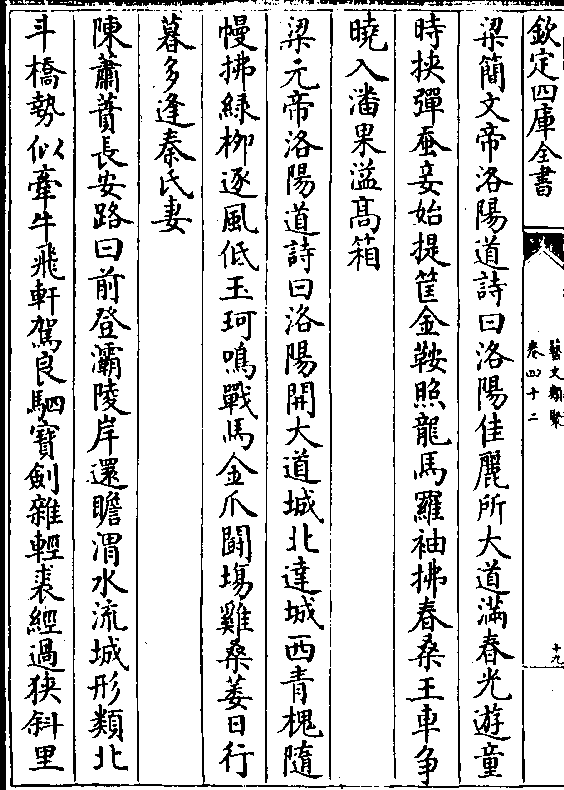 欽定四庫全書
藝文類聚
卷四十二
十九
梁簡文帝洛陽道詩曰洛陽佳麗所大道滿春光遊童
時挾彈蚕妾始提筐金鞍照龍馬羅袖拂春桑王車争
曉入潘果溢髙箱
梁元帝洛陽道詩曰洛陽開大道城北達城西青槐隨
幔拂緑栁逐風低玉珂鳴戰馬金爪鬭塲雞桑萎日行
暮多逢秦氏妻
陳蕭賁長安路曰前登灞陵岸還瞻渭水流城形類北
斗橋勢似牽牛飛軒駕良駟寳劍雜輕裘經過狹斜里